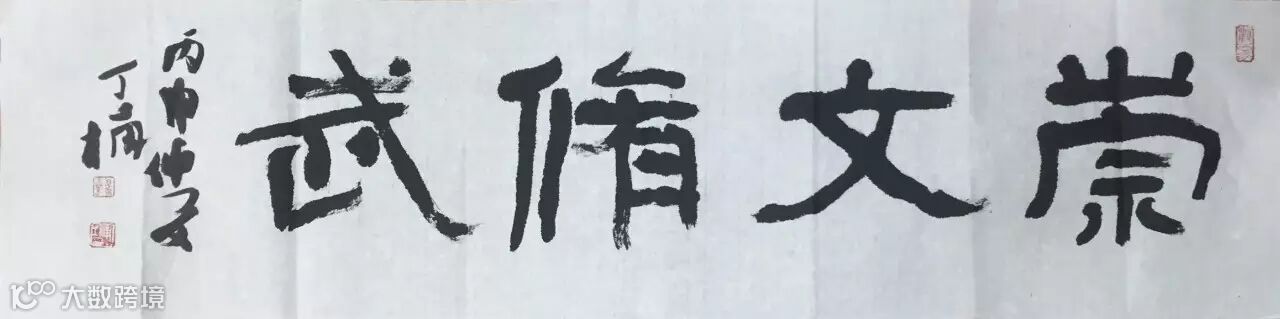 崇文脩武
丙申仲夏
丁楠
大数跨境